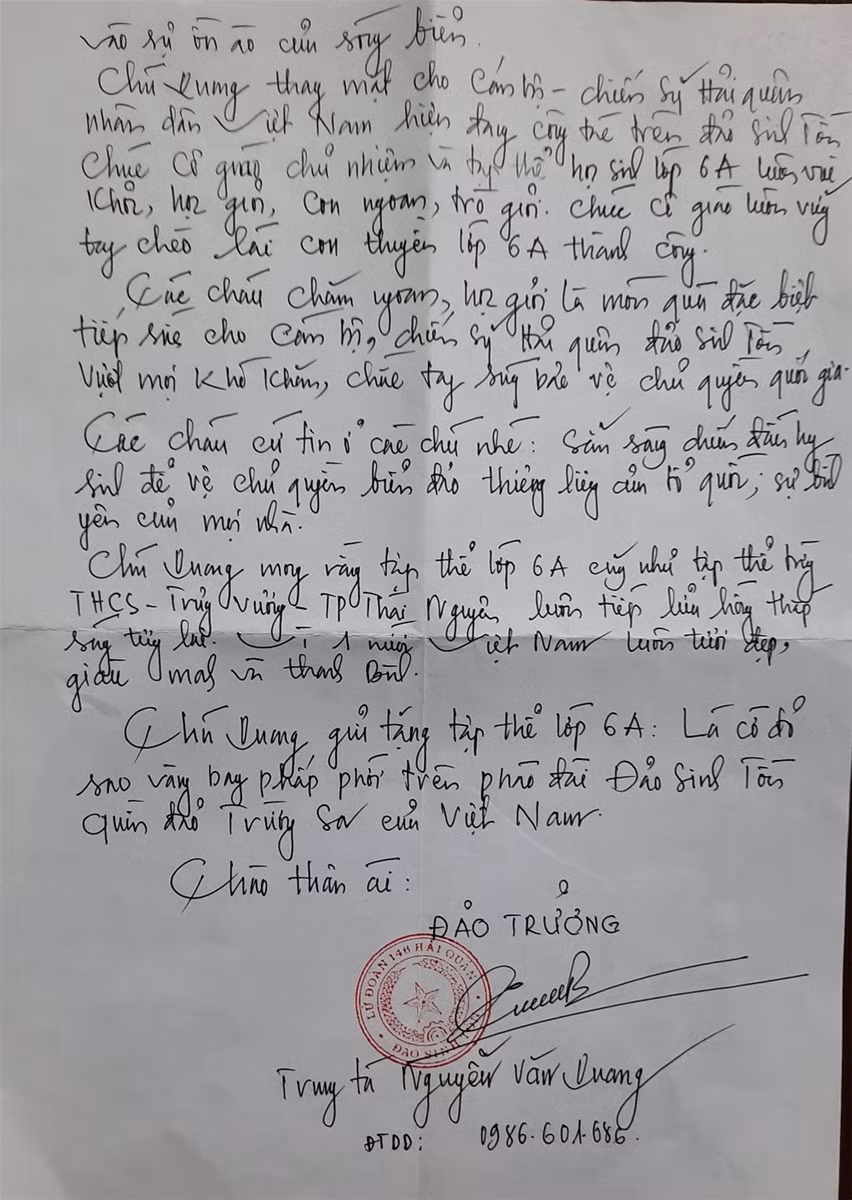 vào sự ồn ào của sóng biển.
Chú Quang thay mặt cho Cán bộ - chiến sỹ Hải quân
nhân dân Việt Nam hiện đang công tác trên đảo Sinh Tồn
Chúc Cô giáo chủ nhiệm và tập thể học sinh lớp 6A luôn vui
Khỏe, học giỏi, con ngoan, trò giỏi. Chúc cô giáo luôn vững
tay chèo lái con thuyền lớp 6A thành công.
Các cháu chăm ngoan, học giỏi là món quà đặc biệt
tiếp sức cho Cán bộ, chiến sỹ Hải quân đảo Sinh Tồn
Vượt mọi Khó Khăn, chắc tay súng bảo vệ chủ quyền quốc gia.
Các cháu cứ tin ở các chú nhé: Sẵn sàng chiến đấu hy
sinh để vệ chủ quyền biển đảo thiêng liêng của tổ quốc; sự bình
yên của mọi nhà.
Chú Quang mong rằng tập thể lớp 6A cũng như tập thể trường
THCS - Trưng Vương - TP Thái Nguyên luôn tiếp lửa hồng thắp
sáng tương lai. Vì 1 nước Việt Nam luôn tươi đẹp,
giàu mạnh và thanh Bình.
Chú Quang gửi tặng tập thể lớp 6A: Lá cờ đỏ
sao vàng bay phấp phới trên pháo đài Đảo Sinh Tồn
quần đảo Trường Sa của Việt Nam.
Chào thân ái:
ĐẢO TRƯỞNG
LỮ ĐOÀN 146 HẢI QUÂN
ĐẢO SINH TỒN
Trung tá Nguyễn Văn Quang
ĐTDD: 0986.601.686.